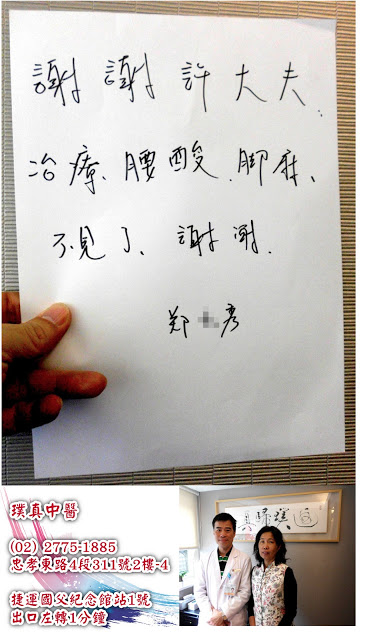 謝謝許大夫.
治療、腰酸、脚麻、
不見了、謝謝.
郑彦
璞真中醫
(02) 2775-1885
忠孝東路4段311號2樓-4
捷運國父紀念館站1號
出口左轉1分鐘
返璞歸真